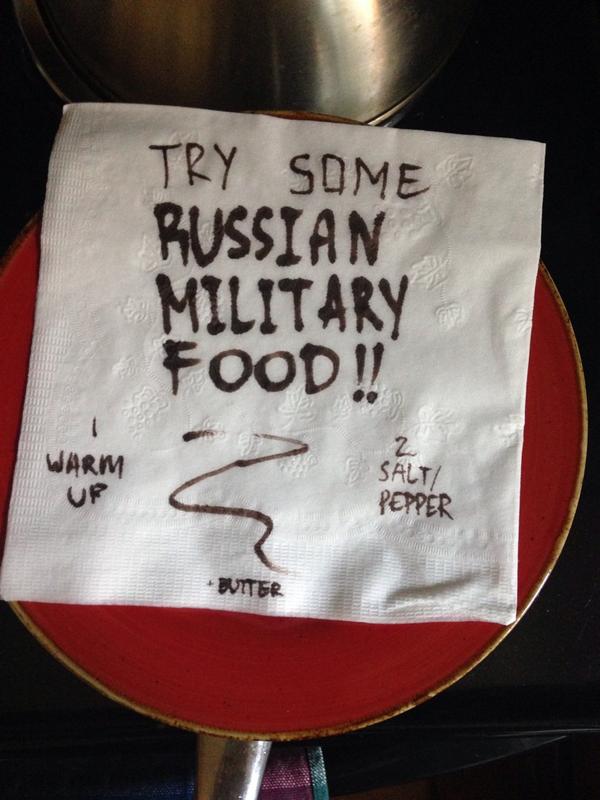 TRY SOME
RUSSIAN
MILITARY
FOOD!!
1
WARM
UP
2
SALT/
PEPPER
+BUTTER